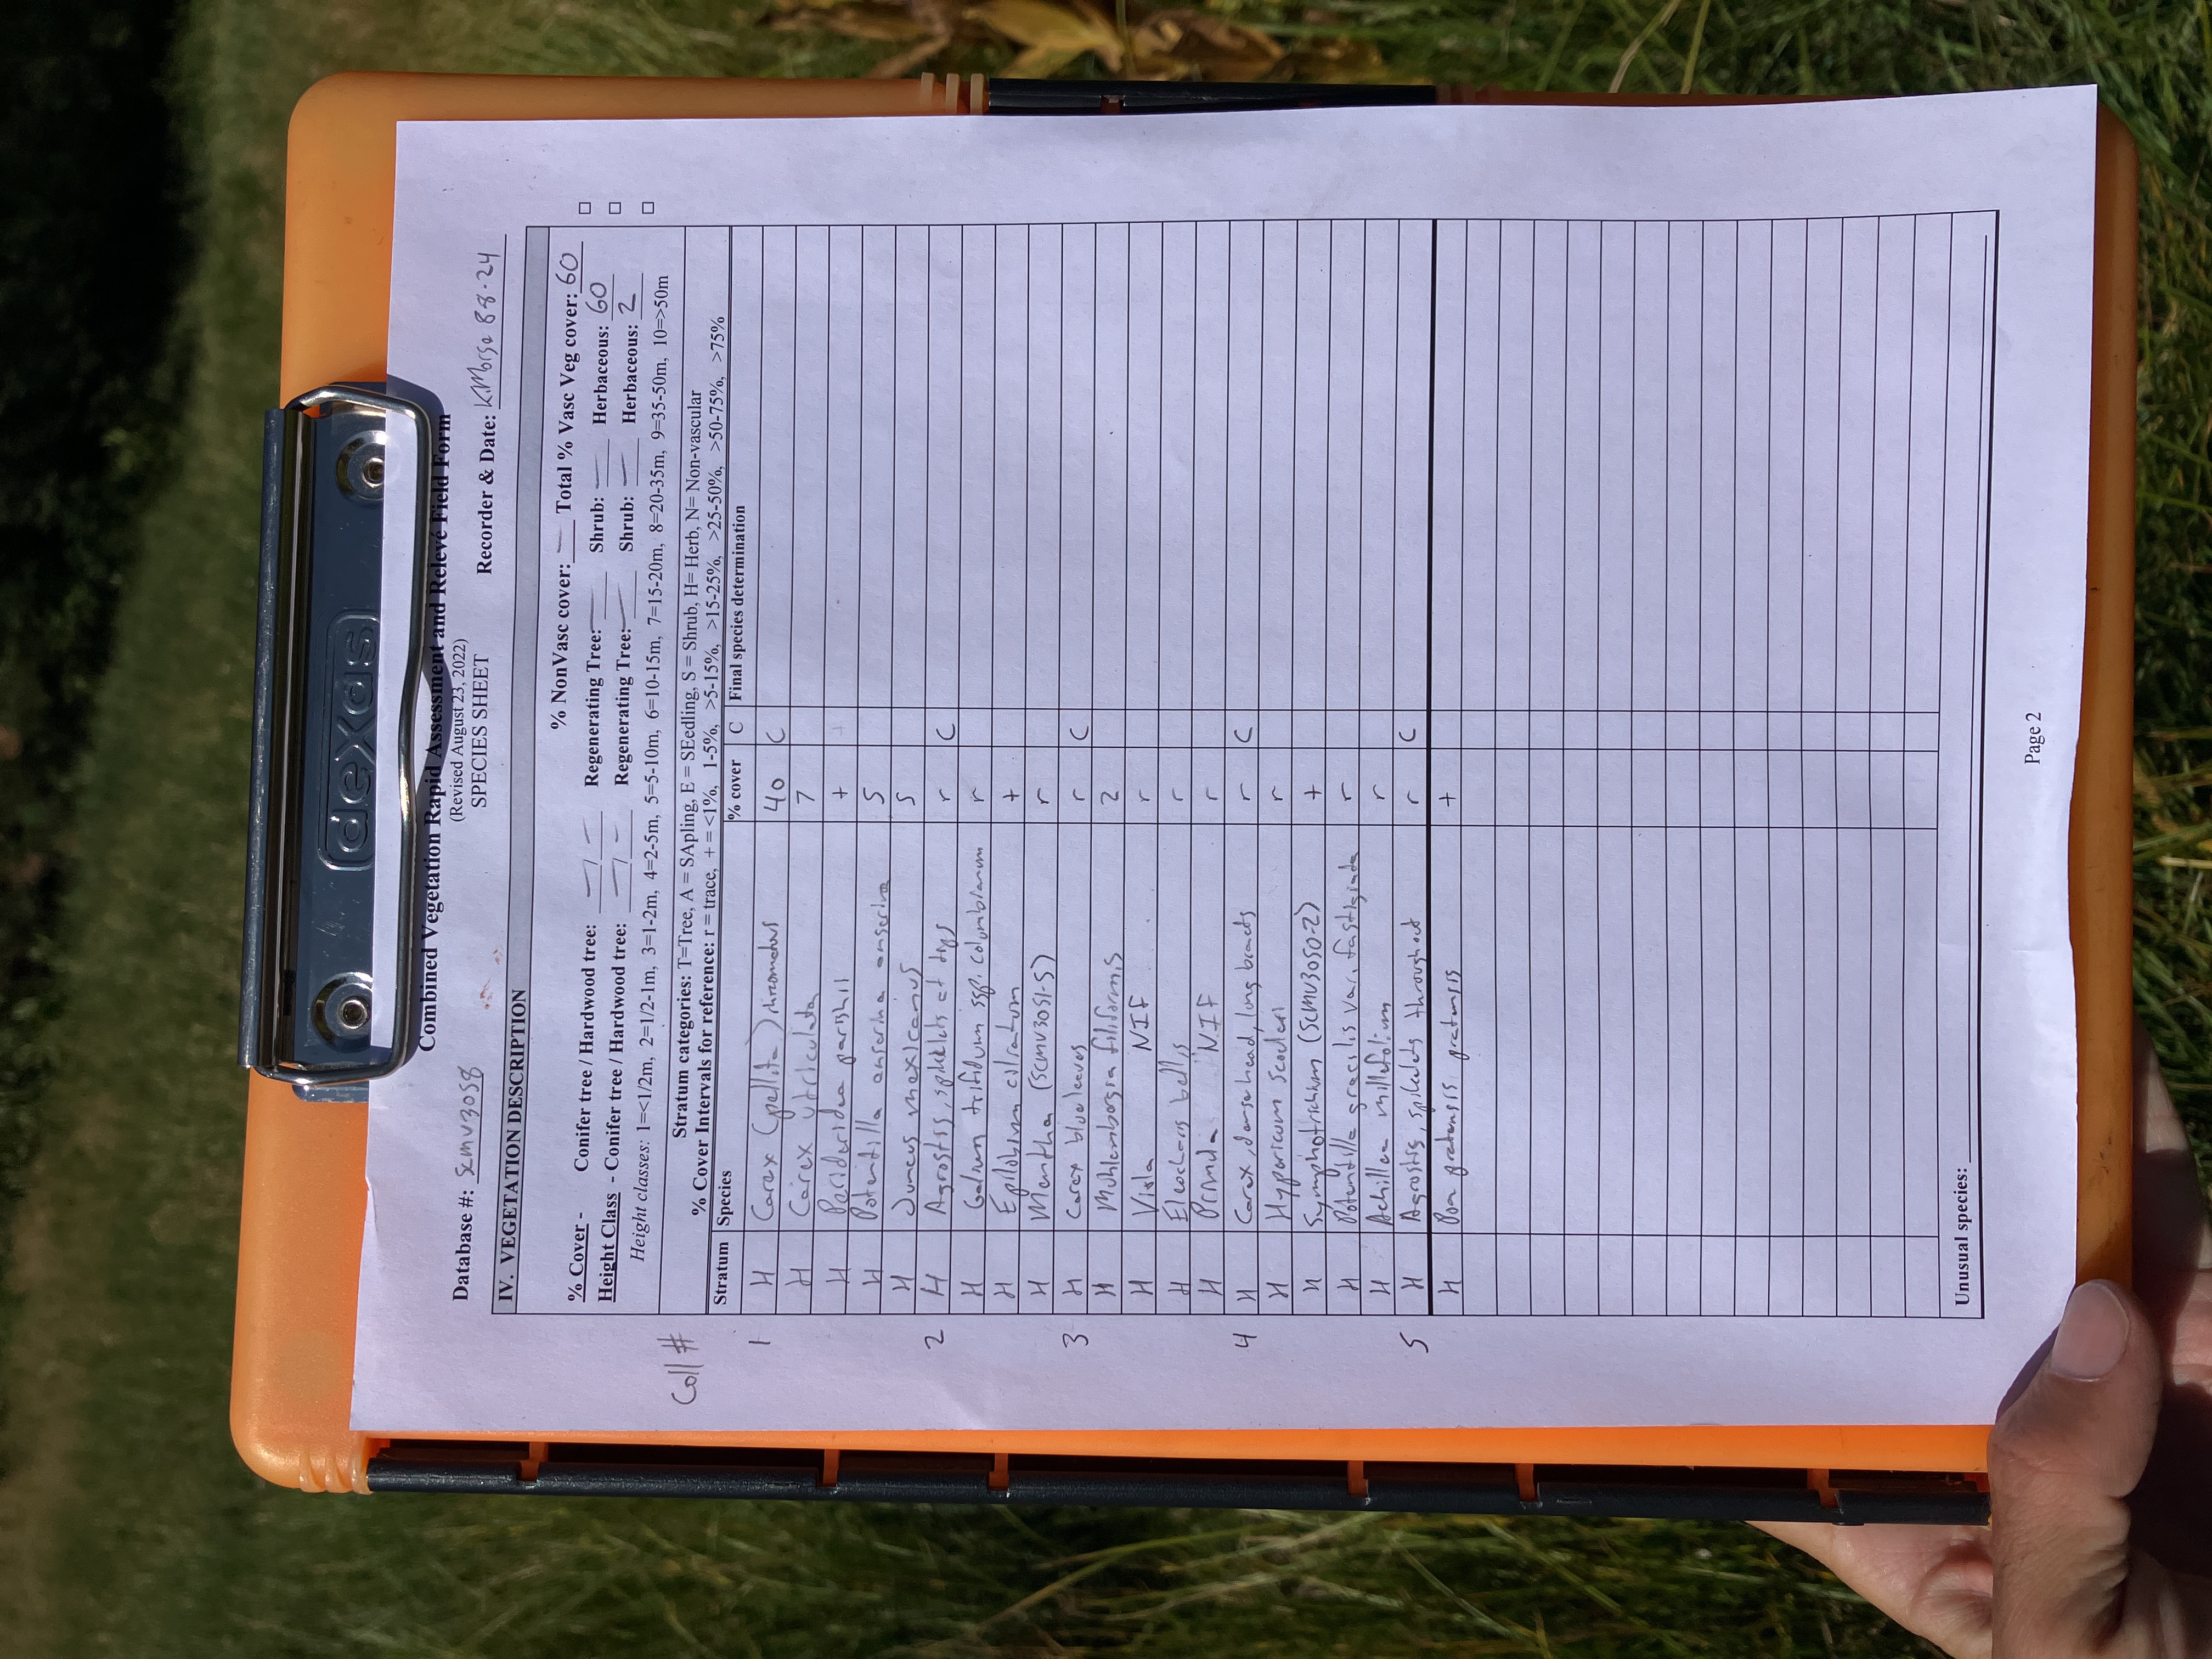 dexas
Combined Vegetation Rapid Assessment and Relevé Field Form
(Revised August 23, 2022)
SPECIES SHEET
Database #: SCMV3058 Recorder & Date: KMorse 8-8-24
IV. VEGETATION DESCRIPTION
% NonVasc cover: — Total % Vasc Veg cover: 60 □
% Cover - Conifer tree / Hardwood tree: — / — Regenerating Tree: — Shrub: — Herbaceous: 60 □
Height Class - Conifer tree / Hardwood tree: — / — Regenerating Tree: — Shrub: — Herbaceous: 2 □
Height classes: 1=<1/2m, 2=1/2-1m, 3=1-2m, 4=2-5m, 5=5-10m, 6=10-15m, 7=15-20m, 8=20-35m, 9=35-50m, 10=>50m
Stratum categories: T=Tree, A = SApling, E = SEedling, S = Shrub, H= Herb, N= Non-vascular
% Cover Intervals for reference: r = trace, + = <1%, 1-5%, >5-15%, >15-25%, >25-50%, >50-75%, >75%
Coll # Stratum Species % cover C Final species determination
1 H Carex (pellita) rhizomatous 40 C
H Carex utriculata 7
H Perideridea parishii +
H Potentilla anserina anserina 5
H Juncus mexicanus 5
2 H Agrostis, spikelets at tips r C
H Galium trifidum ssp. columbianum r
H Epilobium ciliatum +
H Mentha (SCMV3051-5) r
3 H Carex blue leaves r C
H Muhlenbergia filiformis 2
H Viola NIF r
H Eleocharis bella r
H NIF r
4 H Carex, dense head, long bracts r C
H Hypericum scouleri r
H Symphotrichum (SCMV3050-2) +
H Potentilla gracilis var. fastigiata r
H Achillea millefolium r
5 H Agrostis, spikelets throughout r C
H Poa pratensis pratensis +
Unusual species:
Page 2